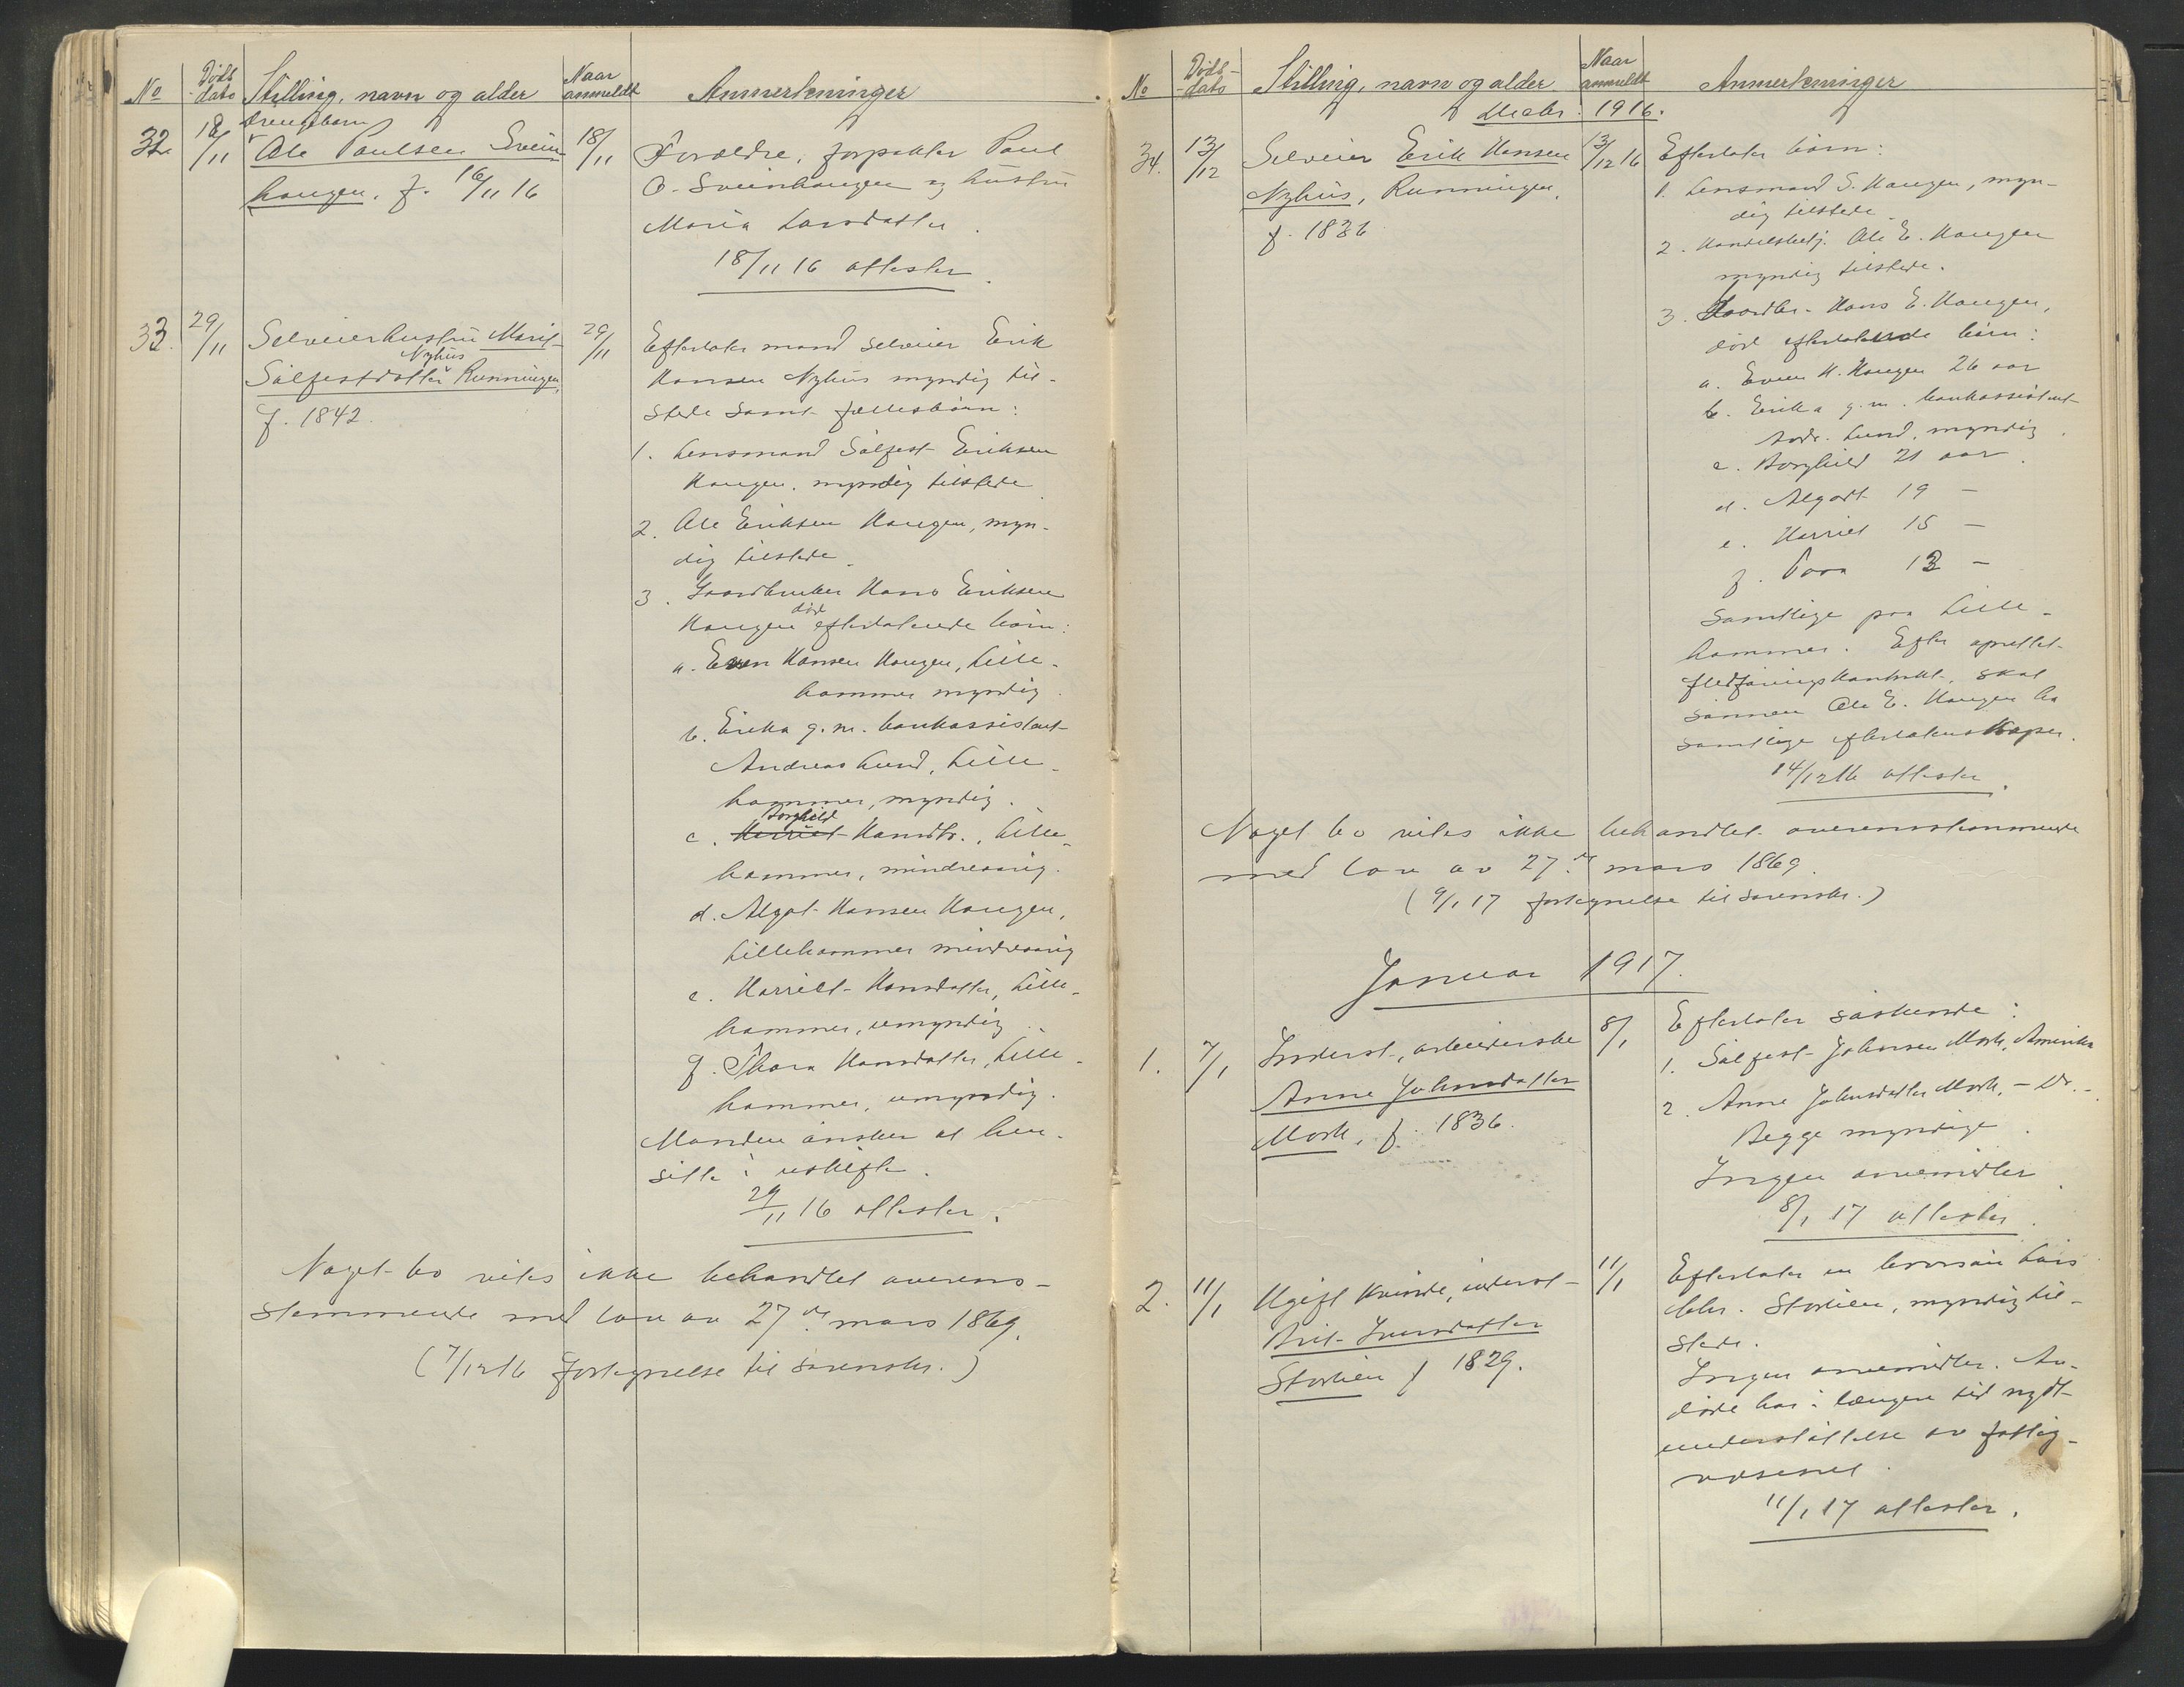 No
Døds-
dato
Stilling, navn og alder
Naar
anmeldt
Anmerkninger
32
18/11
Drengebarn
Ole Paulsen Svein
haugen, f. 16/11 16
18/11
Forældre, forpakter Paul
O. Sveinhaugen og hustru
Maria Larsdatter.
18/11 16 attester.
33.
29/11
Selveierhustru Marit
Nyhus
Sålfestdatter Runningen,
f. 1842.
29/11
Efterlater mand selveier Erik
Hansen Nyhus myndig til-
stede samt fællesbørn:
1. Lensmand Sålfest Eriksen
Haugen, myndig tilstede
2. Ole Eriksen Haugen, myn-
dig tilstede.
3. Gaardbruker Hans Eriksen
død
Haugen efterlatende børn:
a. Even Hansen Haugen, Lille-
hammer myndig.
b. Erika g.m. bankassistent
Andreas Lund, Lille-
hammer, myndig.
Borghild
c. Harriet Hansdtr., Lille-
hammer, mindreaarig.
d. Algot Hansen Haugen,
Lillehammer mindreaarig
e. Harriet Hansdatter, Lille-
hammer, umyndig.
f. Thora Hansdatter, Lille-
hammer, umyndig.
Manden ønsker at hen-
sitte i uskifte.
29/11 16 attester.
Noget bo vites ikke behandlet overens-
stemmende med lov av 27de mars 1869.
(7/12 16 fortegnelse til sorenskr.)
No
Døds-
dato
Stilling, navn og alder
Naar
anmeldt
Anmerkninger
Decbr. 1916.
34.
13/12
Selveier Erik Hansen
Nyhus, Runningen,
f. 1836
13/12 16
Efterlater børn:
1. Lensmand S. Haugen, myn-
dig tilstede.
2. Handelsbetj. Ole E. Haugen
myndig tilstede.
3. Gaardbr. Hans E. Haugen,
død efterlatende børn:
a. Even H. Haugen 26 aar
b. Erika g.m. bankassistent
Andr. Lund, myndig.
c. Borghild 21 aar.
d. Algodt 19 -
e. Harriet 15 -
f. Tora 13 -
samtlige paa Lille-
hammer. Efter oprettet
fledføringskontrakt, skal
sønnen Ole E. Haugen ha
samtlige efterlatenskaper.
14/12 16 attester.
Noget bo vites ikke behandlet overensstemmende
med lov av 27de mars 1869.
(9/1 17 fortegnelse til sorenskr.)
Januar 1917.
1.
7/1
Inderst, arbeiderske
Anne Johnsdatter
Mork, f. 1836.
8/1
Efterlater søskende:
1. Sålfest Johnsen Mork, Amerika
2. Anne Johnsdatter Mork, - Do. -
Begge myndige.
Ingen arvemidler.
8/1 17 attester.
2.
11/1
Ugift kvinde, inderst
Brit Iversdatter
Storlien f 1829.
11/1
Efterlater en brorsøn Lars
Storlien, myndig til-
stede.
Ingen arvemidler. Av-
døde har i længere tid nydt
understøttelse av fattig-
væsenet.
11/1 17 attester.